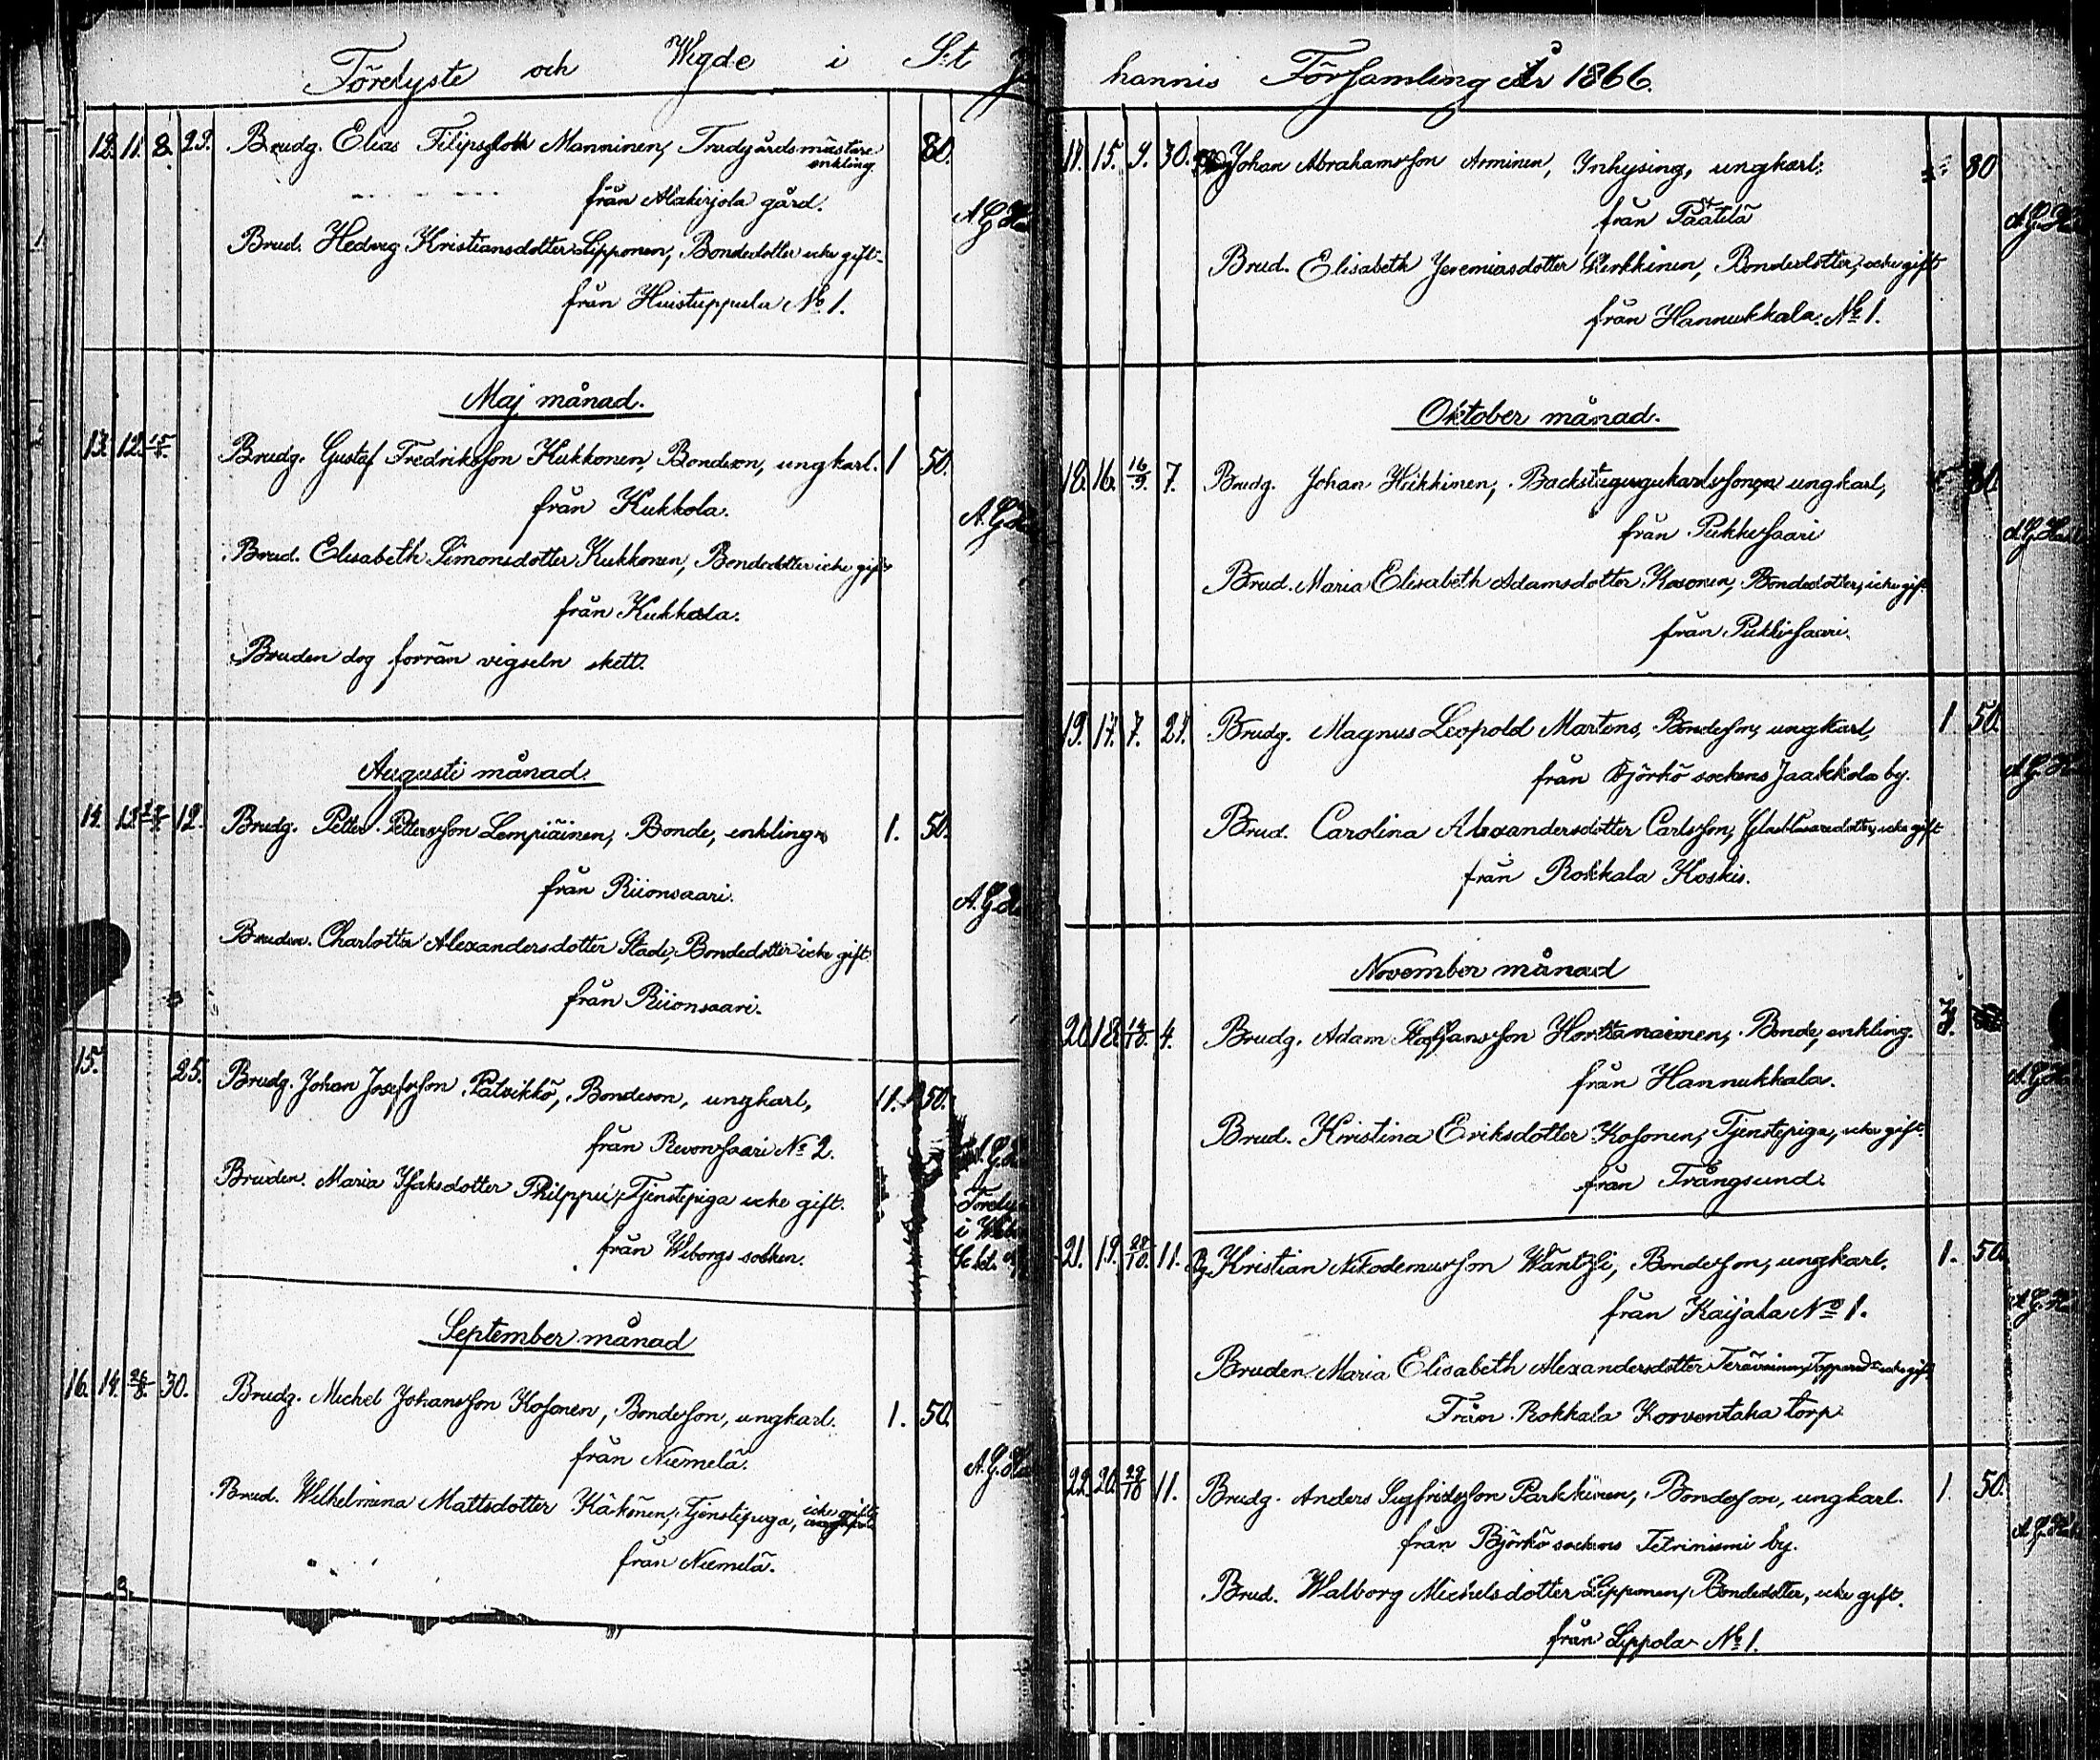 Förelyste och Wigde i S:t Jo
12. 11. 8. 22. Brudg. Elias Filipsson Manninen, Trädgårdsmästare 80.
enkling
från Alakirjola gård.
A. G. Ha
Brud. Hedvig Kristiansdotter Lipponen, Bondedotter icke gift
från Huistuppula No 1.
Maj månad.
13. 12. 15/4. Brudg. Gustaf Fredriksson Kukkonen, Bondeson, ungkarl. 1 50.
från Kukkola.
A. G. Ha
Brud. Elisabeth Simonsdotter Kukkonen, Bondedotter icke gift
från Kukkola.
Bruden dog förrän vigseln skett.
Augusti månad.
14. 13. 12. Brudg. Petter Pettersson Lempiäinen, Bonde, enkling 1. 50.
från Riionsaari.
A. G. Ha
Bruden. Charlotta Alexandersdotter Stade, Bondedotter icke gift
från Riionsaari.
15. 25. Brudg. Johan Josefsson Patvikkö, Bondeson, ungkarl, 1. 50.
från Revonsaari No 2.
A. G. Ha
Bruden. Maria Isaksdotter Philppu, Tjenstepiga icke gift.
från Wiborgs socken.
September månad
16. 14. 26/8. 30. Brudg. Michel Johansson Kosonen, Bondeson, ungkarl. 1. 50.
från Niemelä.
A. G. Ha
Brud. Wilhelmina Mattsdotter Käkönen, Tjenstepiga, icke gift
från Niemelä.
hannis Församling År 1866.
17. 15. 9. 30. Johan Abrahamsson Arminen, Inhysing, ungkarl. 80
från Päätilä
A. G. Ha
Brud. Elisabeth Jeremiasdotter Kerkkinen, Bondedotter, icke gift
från Hannukkala No 1.
Oktober månad.
18. 16. 16/9. 7. Brudg. Johan Heikkinen, Backstugugukarlsson, ungkarl,
från Pukkisaari
A. G. Ha
Brud. Maria Elisabeth Adamsdotter Kosonen, Bondedotter, icke gift
från Pukkisaari.
19. 17. 7. 27. Brudg. Magnus Leopold Martens, Bondeson, ungkarl, 1 50.
från Björkö sockens Jaakkola by.
A. G. Ha
Brud. Carolina Alexandersdotter Carlsson, icke gift
från Rokkala Koskis.
November månad
20. 18. 14/10. 4. Brudg. Adam Staffansson Horttanainen, Bonde, enkling. 3.
från Hannukkala.
A. G. Ha
Brud. Kristina Eriksdotter Kosonen, Tjenstepiga, icke gift.
från Trångsund.
21. 19. 28/10. 11. Bg. Kristian Nikodemusson Wäntsi, Bondeson, ungkarl. 1. 50.
från Kaijala No 1.
A. G. Ha
Bruden. Maria Elisabeth Alexandersdotter Teräväinen, icke gift
Från Rokkala Korventaka torp
22. 20. 29/10 11. Brudg. Anders Sigfridsson Parkkinen, Bondeson, ungkarl. 1. 50.
från Björkö sockens Tetriniemi by.
A. G. Ha
Brud. Walborg Michelsdotter Lipponen, Bondedotter, icke gift.
från Lippola No 1.